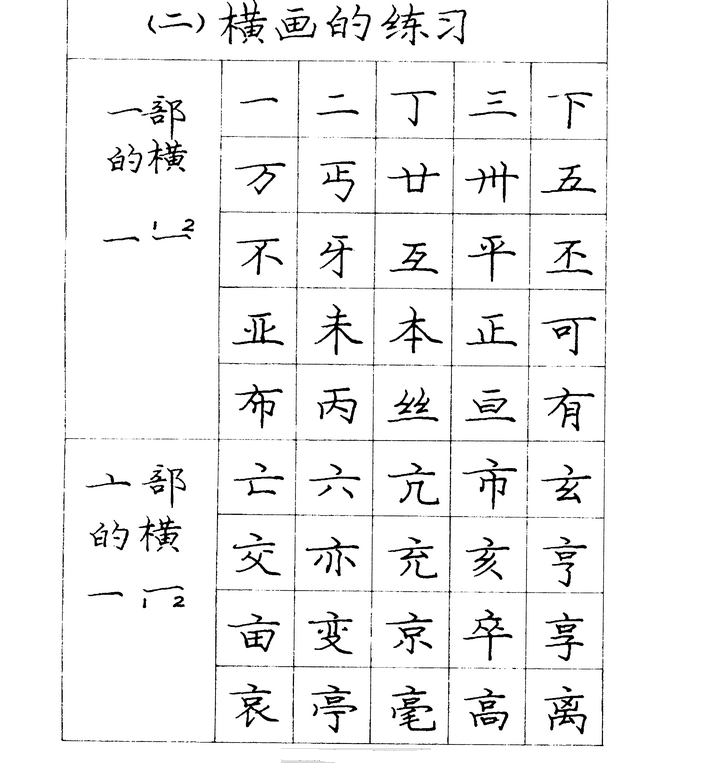 （二）横画的练习
一部的横
一 1 2
一 二 丁 三 下
万 丐 廿 卅 五
不 牙 互 平 丕
亚 未 本 正 可
布 丙 丝 亘 有
亠部的横
一 1 2
亡 六 亢 市 玄
交 亦 充 亥 亨
亩 变 京 卒 享
哀 亭 毫 高 离